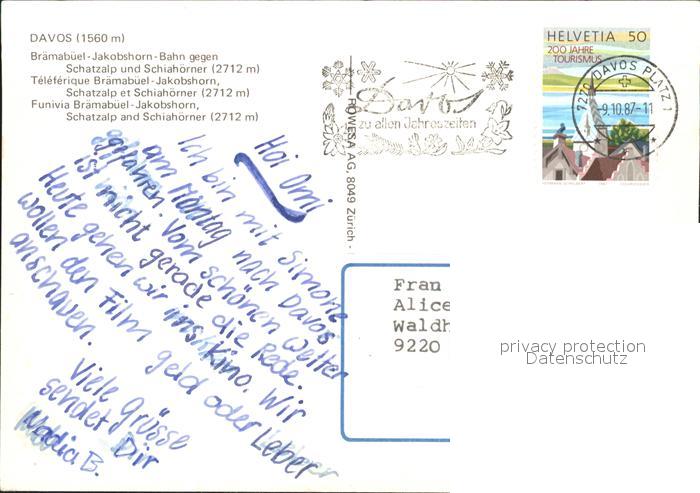 DAVOS (1560 m)
Brämabüel-Jakobshorn-Bahn gegen
Schatzalp und Schiahörner (2712 m)
Téléférique Brämabüel-Jakobshorn,
Schatzalp et Schiahörner (2712 m)
Funivia Brämabüel-Jakobshorn,
Schatzalp and Schiahörner (2712 m)
Hoi Omi
Ich bin mit Simone
am Montag nach Davos
gefahren. Vom schönen Wetter
ist nicht gerade die Rede.
Heute gehen wir ins Kino. Wir
wollen den Film geld oder Leber
anschauen.
Viele Grüsse
sendet Dir
Nadia B.
ROWESA AG, 8049 Zürich -
Davos
zu allen Jahreszeiten
HELVETIA 50
200 JAHRE
TOURISMUS
7270 DAVOS PLATZ 1
-9.10.87-11
Frau
Alice
Waldh
9220
privacy protection
Datenschutz